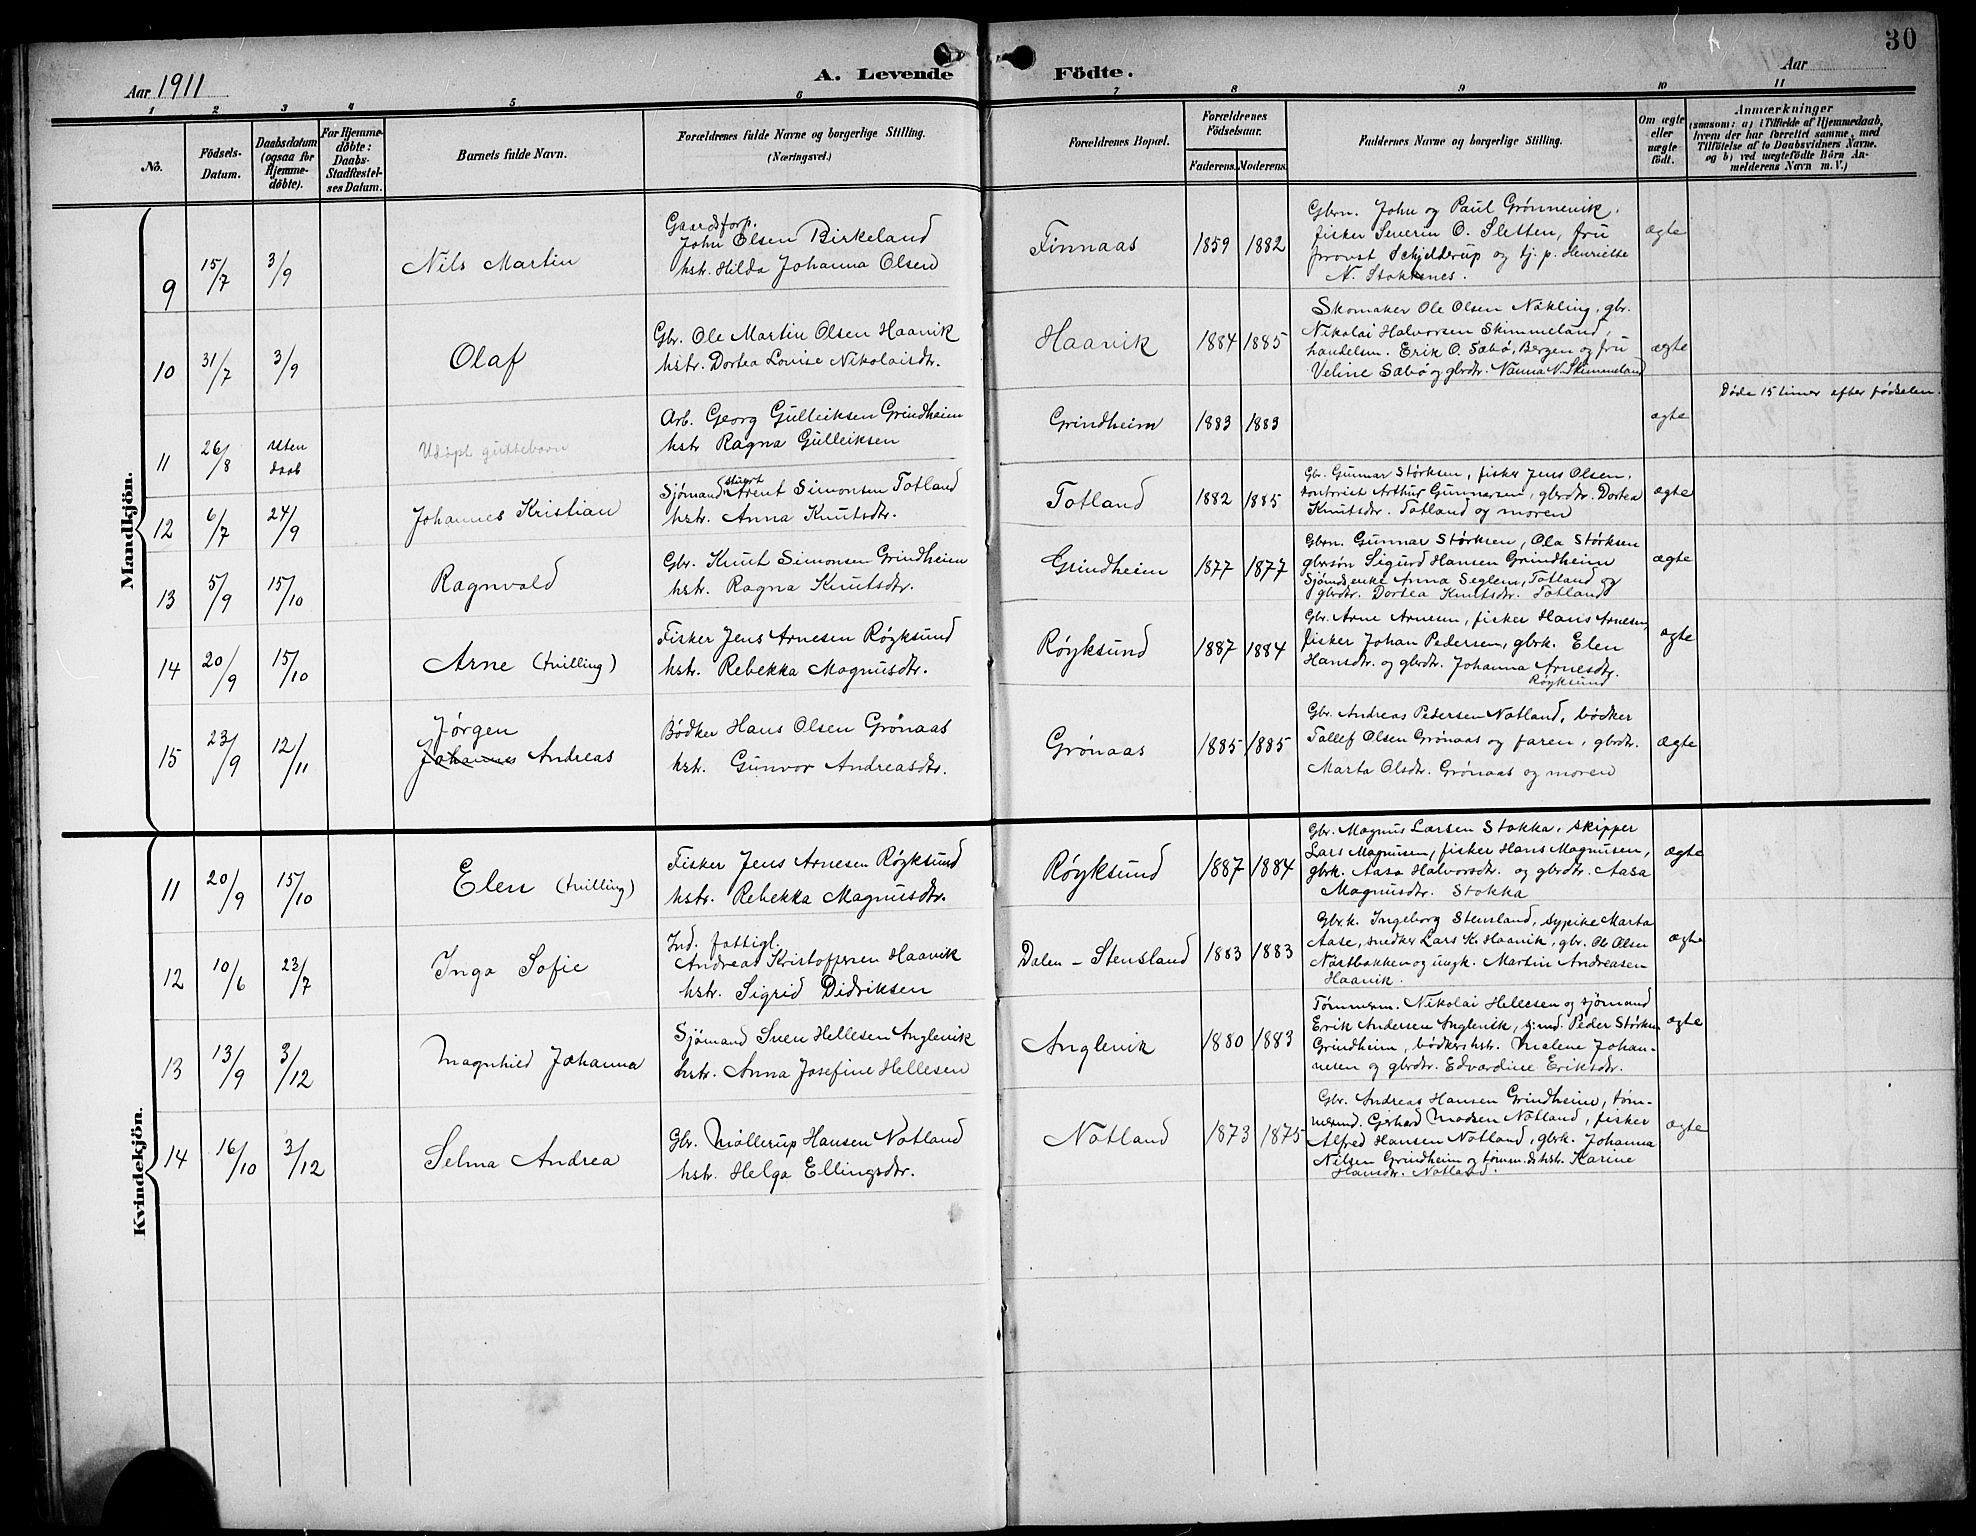 30
Aar 1911
A. Levende Födte.
Aar
1 2 3 4 5 6 7 8 9 10 11
No.
Födsels-Datum.
Daabsdatum (ogsaa for Hjemme-døbte).
For Hjemme-døbte: Daabs-Stadfæstel-ses Datum.
Barnets fulde Navn.
Forældrenes fulde Navne og borgerlige Stilling. (Næringsvei.)
Forældrenes Bopæl.
Forældrenes Fødselsaar.
Faderens. Moderens.
Faddernes Navne og borgerlige Stilling.
Om ægte eller uægte født.
Anmærkninger
(saasom: a) i Tilfælde af Hjemmedaab,
hvem der har forrettet samme, med
Tilföielse af to Daabsvidners Navne.
og b) ved uægtefödte Börn An-
melderens Navn m. V.)
Mandkjön.
9 15/7 3/9 Nils Martin
Gaardsforp.
John Olsen Birkeland
hstr. Hilda Johanna Olsen
Finnaas 1859 1882
Gbrn. John og Paul Grønnevik,
fisker Severin O. Sletten, fru
provst Schjelderup og tj. p. Henriette
N. Stokkenes.
ægte
10 31/7 3/9 Olaf
Gbr. Ole Martin Olsen Haavik
hstr. Dortea Lovise Nikolaisdtr.
Haavik 1884 1885
Skomaker Ole Olsen Nakling, gbr.
Nikolai Halvorsen Skimmeland,
handelsm. Erik O. Sæbø, Bergen og fru
Veline Sæbø og gbrdtr. Nanna N. Skimmeland
ægte
11 26/8 uten daab Udøpt guttebarn
Arb. Georg Gulleiksen Grindheim
hstr Ragna Gulleiksen
Grindheim 1883 1883
ægte
Døde 15 timer efter fødselen.
12 6/7 24/9 Johannes Kristian
Sjømand, stuert Arent Simonsen Totland
hstr. Anna Knutsdtr.
Totland 1882 1885
Gbr. Gunnar Størksen, fisker Jens Olsen,
Arthur Gunnarsen, gbrdtr. Dortea
Knutsdtr. Totland og moren
ægte
13 5/9 15/10 Ragnvald
Gbr. Knut Simonsen Grindheim
hstr. Ragna Knutsdtr.
Grindheim 1877 1877
Gbrn. Gunnar Størksen, Ola Størksen
gbrsøn Sigurd Hansen Grindheim
Sjømdsenke Anna Seglem, Totland og
gbrdtr. Dortea Knutsdtr. Totland
ægte
14 20/9 15/10 Arne (tvilling)
Fisker Jens Arnesen Røyksund
hstr. Rebekka Magnusdtr.
Røyksund 1887 1884
Gbr. Arne Arnesen, fisker Hans Arnesen,
fisker Johan Pedersen, gbrk. Elen
Hansdtr. og gbrdtr. Johanna Arnesdtr.
Røyksund
ægte
15 23/9 12/11 Jørgen
Johannes Andreas
Bødker Hans Olsen Grönaas
hstr. Gunvor Andreasdtr.
Grönaas 1885 1885
Gbr. Andreas Pedersen Notland, bødker
Tallef Olsen Grönaas og faren, gbrdtr.
Marta Olsdtr. Grönaas og moren
ægte
Kvindekjön.
11 20/9 15/10 Elen (tvilling)
Fisker Jens Arnesen Røyksund
hstr. Rebekka Magnusdtr.
Røyksund 1887 1884
Gbr. Magnus Larsen Stokka, skipper
Lars Magnusen, fisker Hans Magnusen,
gbrk. Aasa Halvorsdtr. og gbrdtr. Aasa
Magnusdtr. Stokka
ægte
12 10/6 23/7 Inga Sofie
Ind. fattigl.
Andreas Kristoffersen Haavik
hstr. Sigrid Didriksen
Dalen - Stensland 1883 1883
Gbrk. Ingeborg Stensland, sypike Marta
Aase, snedker Lars K. Haavik, gbr. Ole Olsen
Nöstbakken og ungk. Martin Andreasen
Haavik.
ægte
13 13/9 3/12 Magnhild Johanna
Sjømand Sven Hellesen Anglevik
hstr. Anna Josefine Hellesen
Anglevik 1880 1883
Tømmerm. Nikolai Hellesen og sjømand
Erik Andersen Anglevik, sj.md. Peder Størksen
Grindheim, bødkershstr. Malene Johan-
nesen og gbrdtr. Edvardine Eriksdtr.
ægte
14 16/10 3/12 Selma Andrea
Gbr. Møllerup Hansen Notland
hstr. Helga Ellingsdtr.
Notland 1873 1875
Gbr. Andreas Hansen Grindheim, tøm-
mermd. Gerhard Madsen Notland, fisker
Alfred Hansen Notland, gbrk. Johanna
Nilsen Grindheim og tømm.dshstr. Karine
Hansdtr. Notland.
ægte